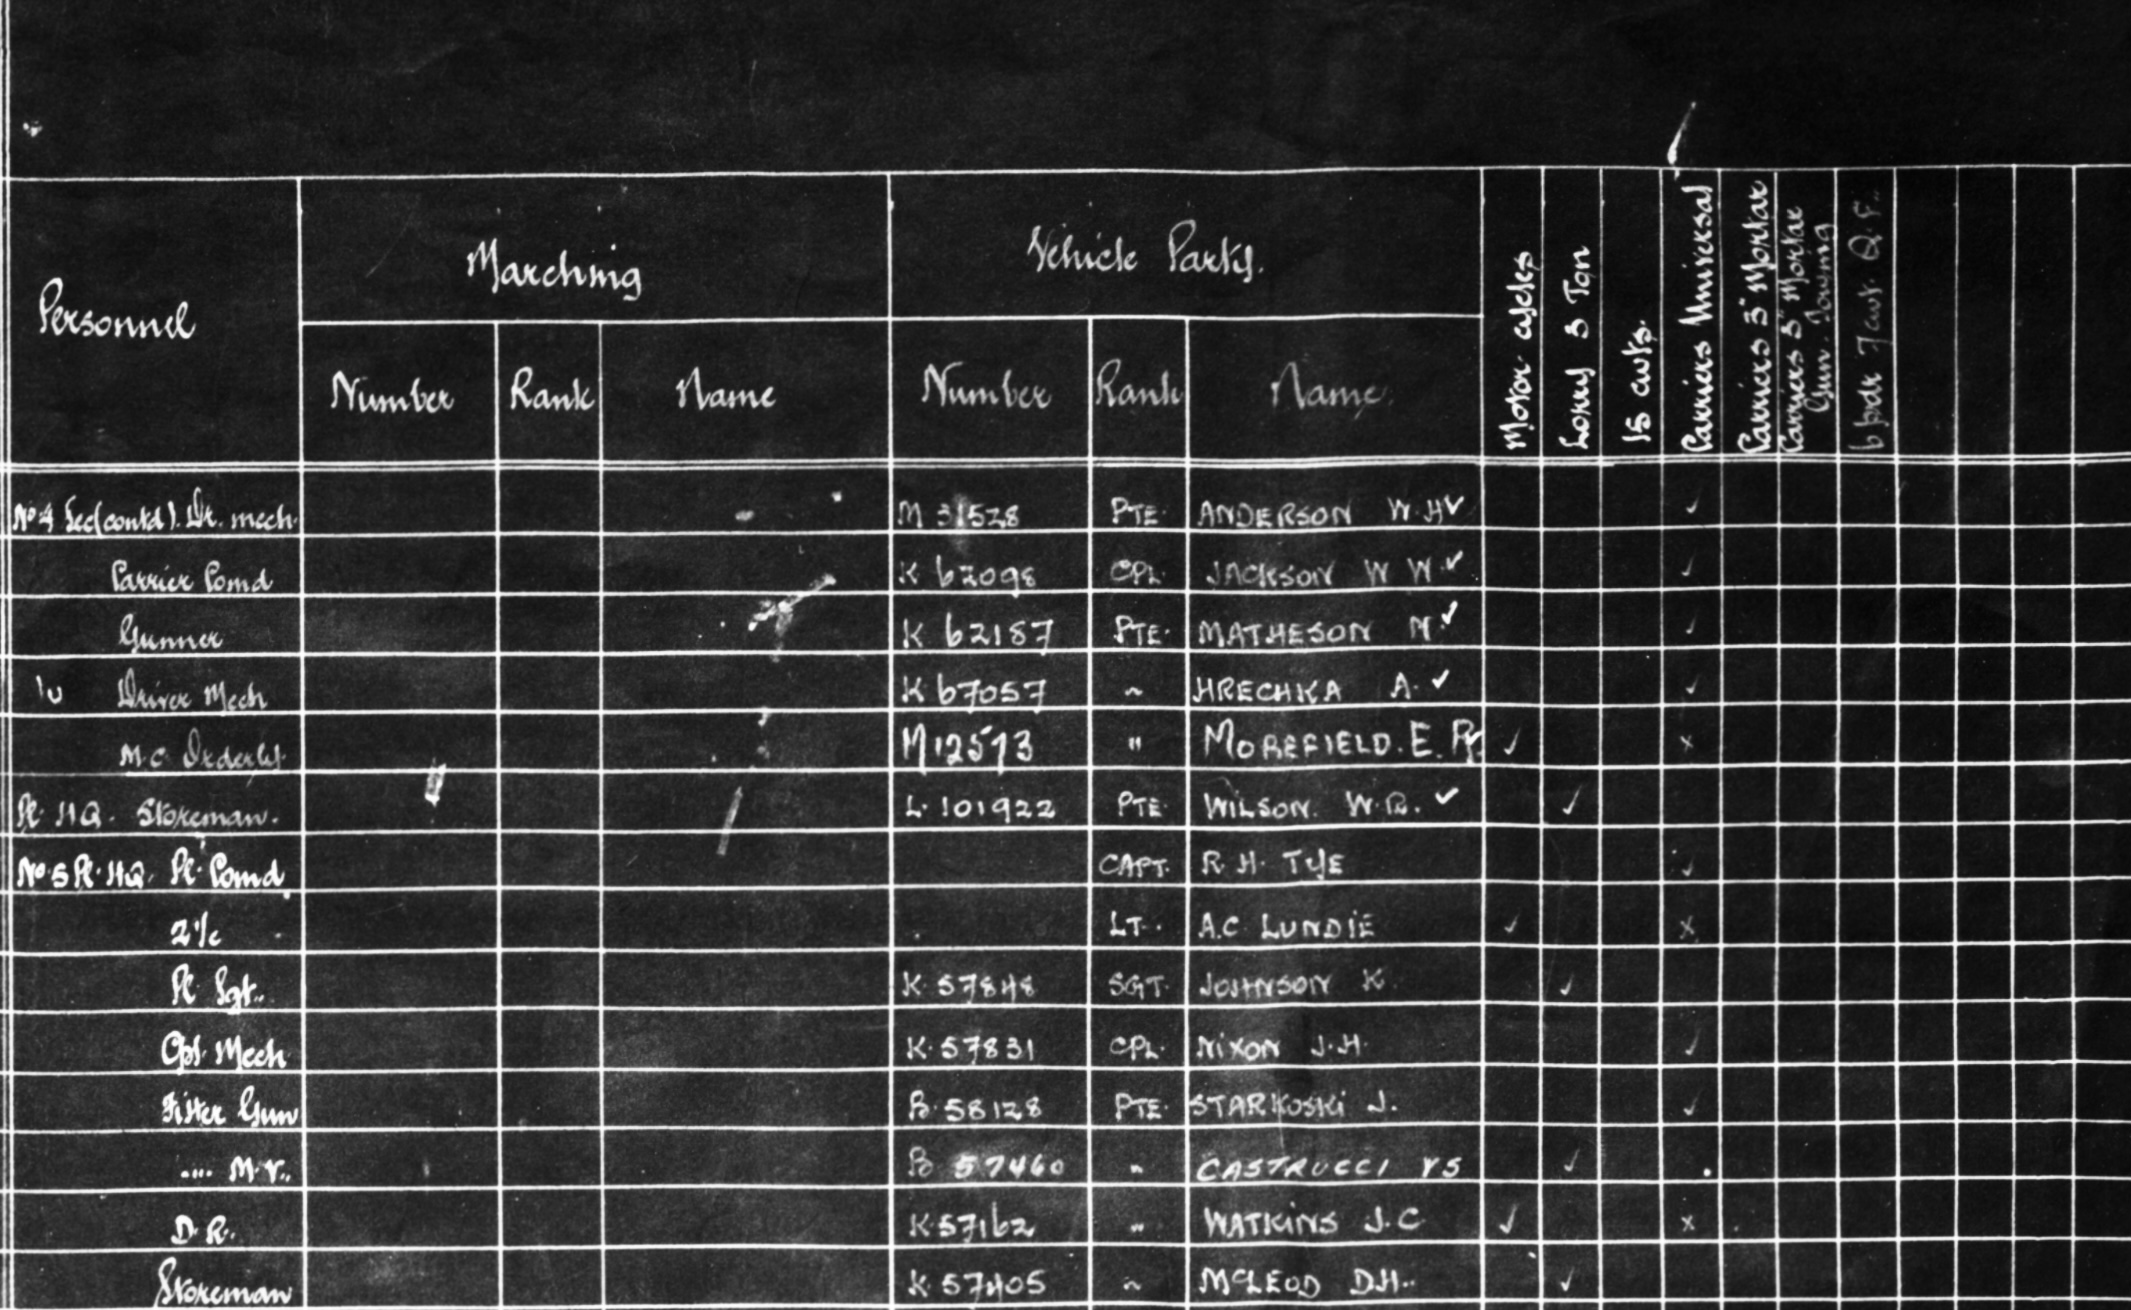 Personnel Marching Vehicle Party. Motor cycles Lorry 3 Ton 15 cwts. Carriers Universal Carriers 3" Mortar Carriers 3" Mortar Gun. Towing 6 pdr 7 cwt. Q.F.
Number Rank Name Number Rank Name
No 4 Sec (contd). Dr. mech. M 31528 PTE. ANDERSON W.H ✓ ✓
Carrier Comd K 62098 CPL. JACKSON W W. ✓ ✓
Gunner K 62187 PTE. MATHESON N. ✓ ✓
Driver Mech K 67057 " HRECHKA A. ✓ ✓
M.C. Orderly. M 12573 " MOREFIELD. E. R. ✓ x
Pl. HQ. Storeman. L. 101922 PTE. WILSON. W.R. ✓ ✓
No. 5 Pl. HQ. Pl. Comd. CAPT. R. H. TYE ✓
2 i/c LT. A.C. LUNDIE ✓ x
Pl. Sgt. K. 57848 SGT. JOHNSON K. ✓
Cpl. Mech K. 57831 CPL. NIXON J.H. ✓
Fitter Gun B. 58128 PTE. STARKOSKI J. ✓
.... M.V. B 57460 " CASTRUCCI VS ✓
D.R. K 57162 " WATKINS J.C. ✓ x
Storeman K 57405 " MCLEOD D.H. ✓